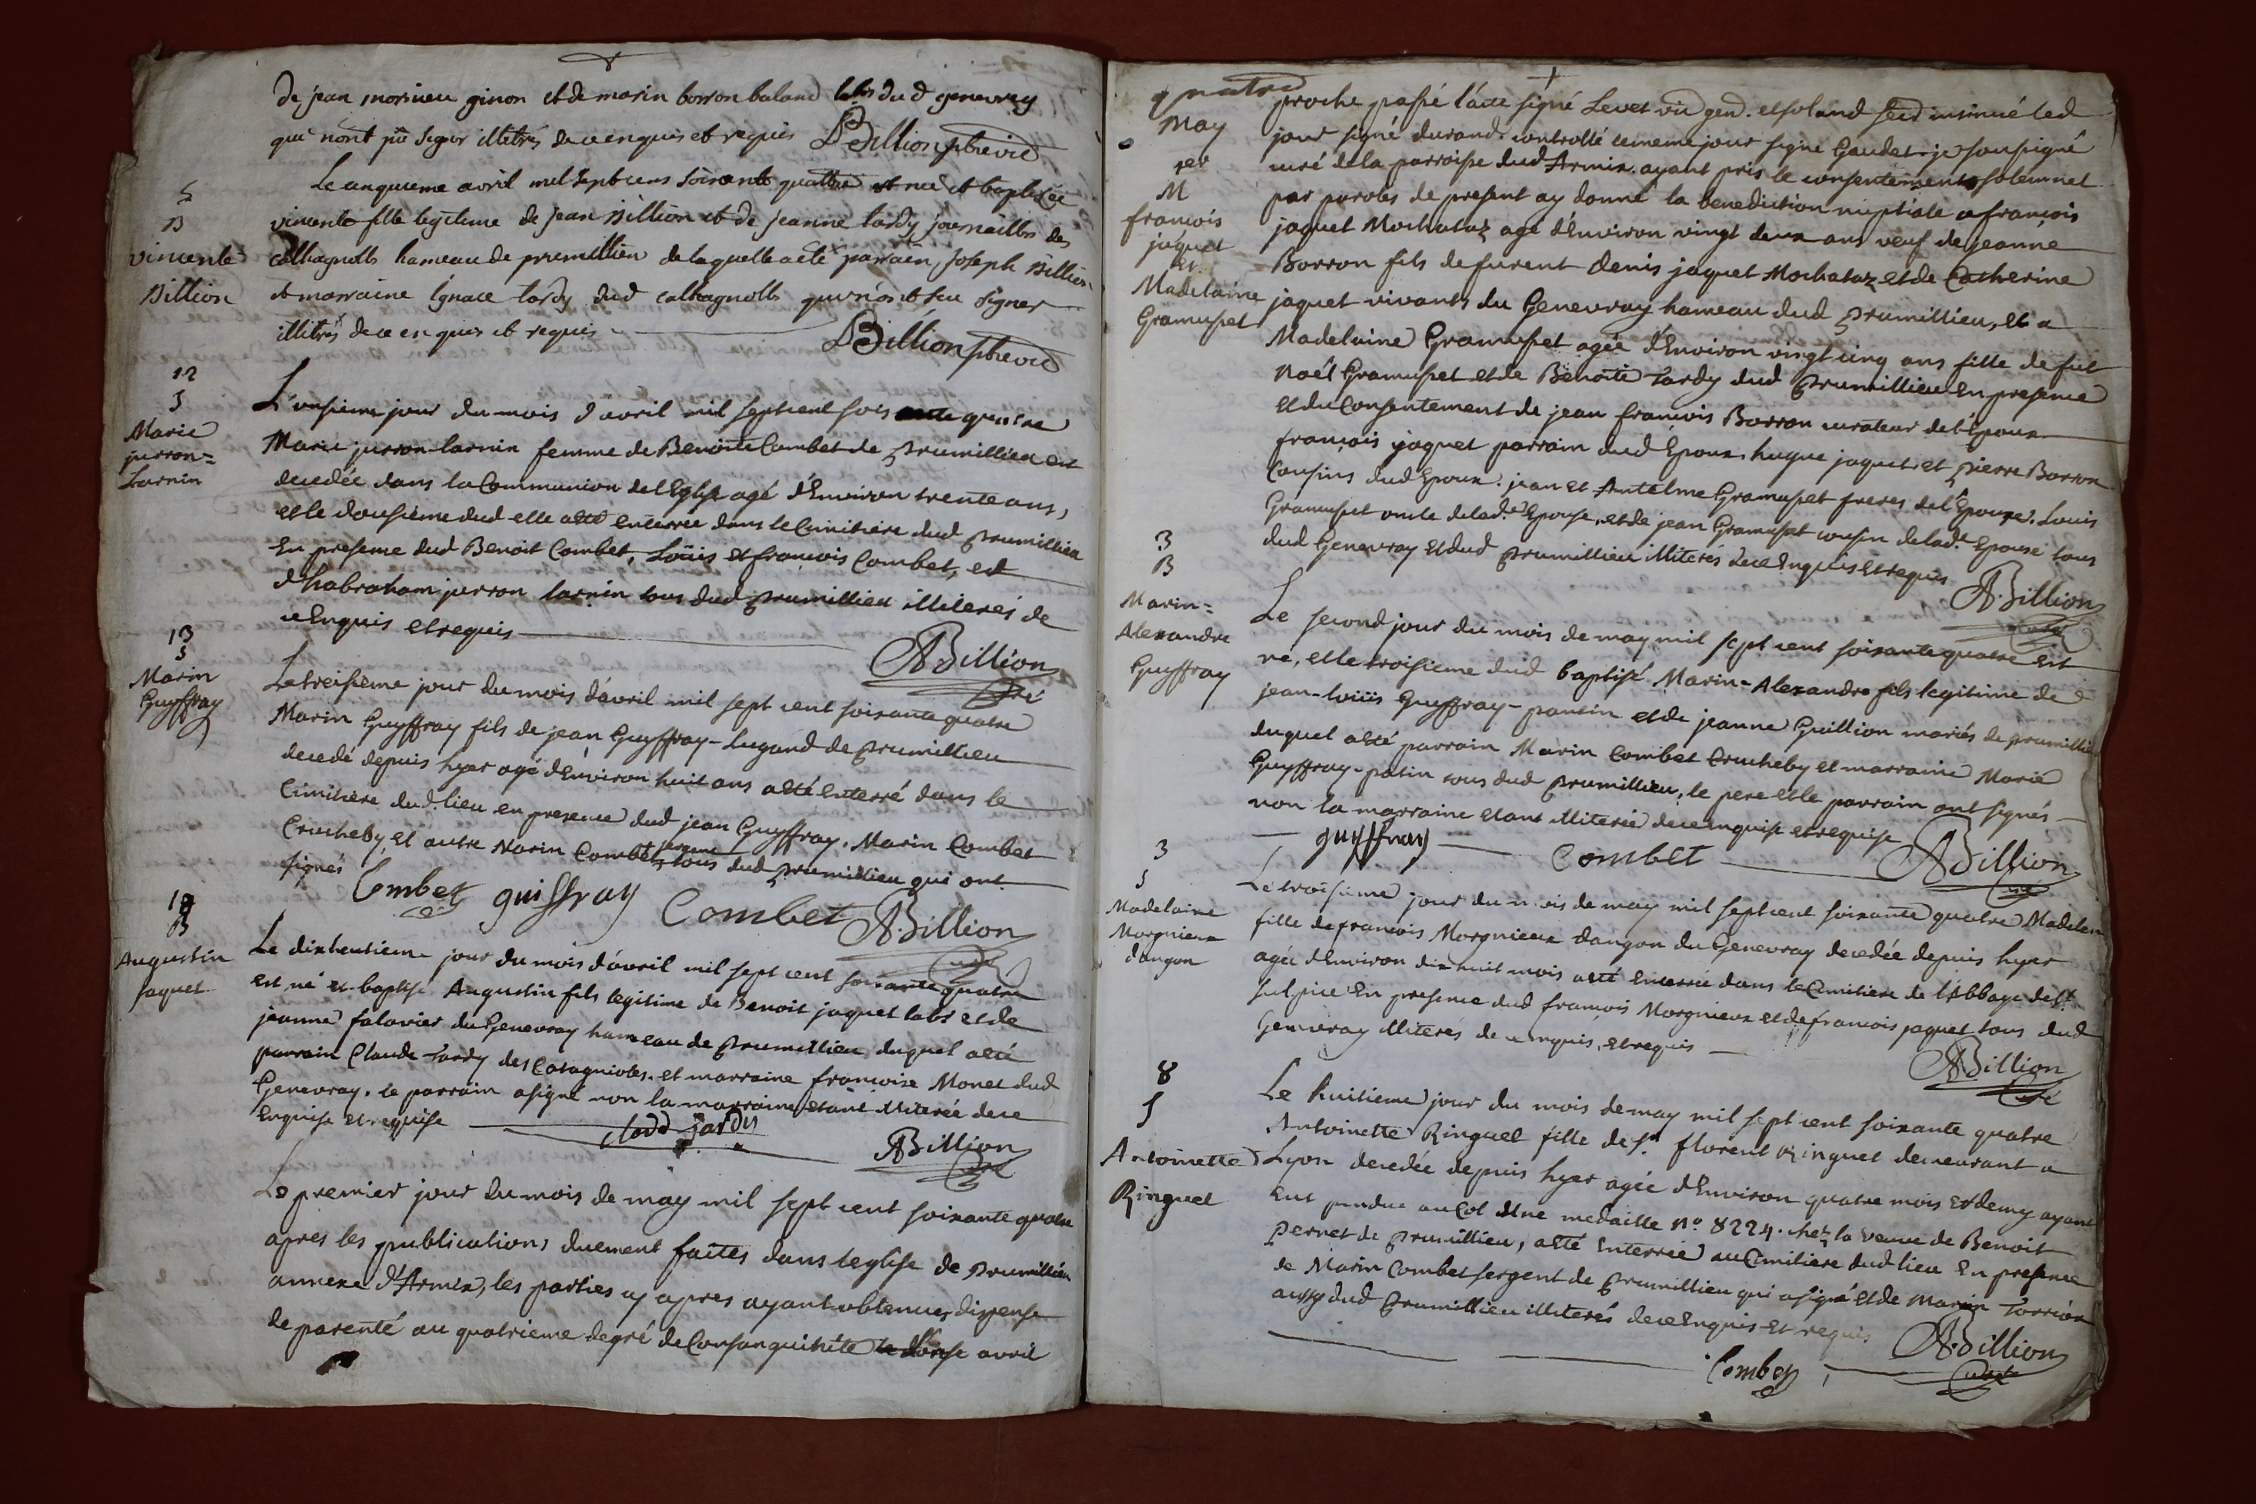 de jean morinieu ginon et de marin borron baland labrs du d genevray
qui n'ont sû signer illitrés de ce enquis et requis Billion pbre vic
5
B
vincente
Billion
Le cinquieme avril mil sept cens soixante quattre est née et baptisée
vincente fille legitime de jean Billion et de jeanne tardy journailles des
cathagnolls hameau de prumillieu de laquelle a eté parrain joseph Billion
et marraine ignace tardy dud cathagnolls qui n'ont sceu signer
illitrés de ce enquis et requis
Billion pbre vic
12
S
Marie
jurron=
Larnin
L'onsieme jour du mois d'avril mil sept cent soixante quatre
Marie jurron-larnin femme de Benoit Combet de prumillieu est
decedée dans la Communion de l'Eglise agé d'Environ trente ans,
et le dousieme dud elle a eté enterrée dans le Cimitiere dud prumillieu
En presence dud Benoit Combet, Loüis et françois Combet, et
d'habraham jurron larnin tous dud prumillieu illiterés de
ce Enquis et requis
A Billion
curé
13
S
Marin
Guyffray
Le treisieme jour du mois d'avril mil sept cent soixante quatre
Marin Guyffray fils de jean Guyffray-Lugand de prumillieu
decedé depuis hyer agé d'Environ huit ans a eté enterré dans le
Cimitiere dud. lieu en presence dud jean Guyffray, Marin Combet
Crucheby, et autre Marin Combet jerome tous dud prumillieu qui ont
signés
Combet guiffray Combet A. Billion
curé
18
B
Augustin
jaquet
Le dixheutieme jour du mois d'avril mil sept cent soixante quatre
est né et baptisé Augustin fils legitime de Benoit jaquet labr et de
jeanne falavier du Genevray hameau de prumillieu duquel a eté
parrain Claude Tardy des Catagnioles. et marraine françoise Monet dud
Genevray. le parrain a signé non la marraine etant illiterée de ce
Enquise et requise
clodd jardy
A Billion
curé
Le premier jour du mois de may mil sept cent soixante quatre
apres les publications duement faites dans leglise de Prumillieu
annexe d'Armix, les parties cy apres ayant obtenues dispense
de parenté au quatrieme degré de Consanguinité le donse avril
quatre
May
1er
M
françois
jaquet
et
Madelaine
Gramusset
proche passé l'acte signé Levet vic gen. et soland secr insinué led
jour signé durand. controllé le meme jour signé Gaudet. je soussigné
curé de la parroisse dud Armix. ayant pris le consentement solemnel
par paroles de present ay donné la benediction nuptiale a françois
jaquet Mochataz agé d'Environ vingt deux ans veuf de jeanne
Borron fils de furent denis jaquet Mochataz et de Catherine
jaquet vivants du Genevray hameau dud prumillieu, et a
Madelaine Gramusset agée d'Environ vingt cinq ans fille de fut
noël Gramusset et de Benoite Tardy dud prumillieu En presence
et du Consentement de jean françois Borron curateur de l'Epoux
françois jaquet parrain dud Epoux, hugue jaquet et pierre Borron
Cousins dud Epoux. jean et Antelme Gramusset freres de l'Epouse, Louis
Gramusset oncle de lad.e Epouse, et de jean Gramusset cousin de lad.e Epouse tous
dud Genevray et dud prumillieu illiterés de ce Enquis et requis
A. Billion
curé
3
B
Marin=
Alexandre
Guyffray
Le second jour du mois de may mil sept cent soixante quatre est
né, et le troisieme dud baptisé Marin-Alexandre fils legitime de
jean-louis Guyffray-pantin et de jeanne Guillion mariés de prumillieu
duquel a eté parrain Marin Combet Crucheby et marraine Marie
Guyffray-patin tous dud prumillieu, le pere et le parrain ont signés
non la marraine etant illiterée de ce enquise et requise
guyffray Combet A Billion
curé
3
S
Madelaine
Morgnieux
dangon
Le troisieme jour du mois de may mil sept cent soixante quatre Madelene
fille de françois Morgnieux dangon du Genevray decedée depuis hyer
agée d'Environ dix huit mois a eté Enterrée dans le Cimitiere de l'Abbaye de St.
sulpice En presence dud françois Morgnieux et de francois jaquet tous dud
Genevray illiterés de ce enquis, et requis
A Billion
curé
8
S
Antoinette
Ringuet
Le huitieme jour du mois de may mil sept cent soixante quatre
Antoinette Ringuet fille de sr. florent Ringuet demeurant a
Lyon decedée depuis hyer agée d'Environ quatre mois et demy ayant
Eut pendue au Col Une medaille no. 8224. chez la veuve de Benoit
pernet de prumillieu, a eté Enterrée au Cimitiere dud lieu En presence
de Marin Combet sergent de prumillieu qui a signé et de Marin Torrion
aussy dud prumillieu illiterés de ce Enquis et requis
A. Billion
Combet curé